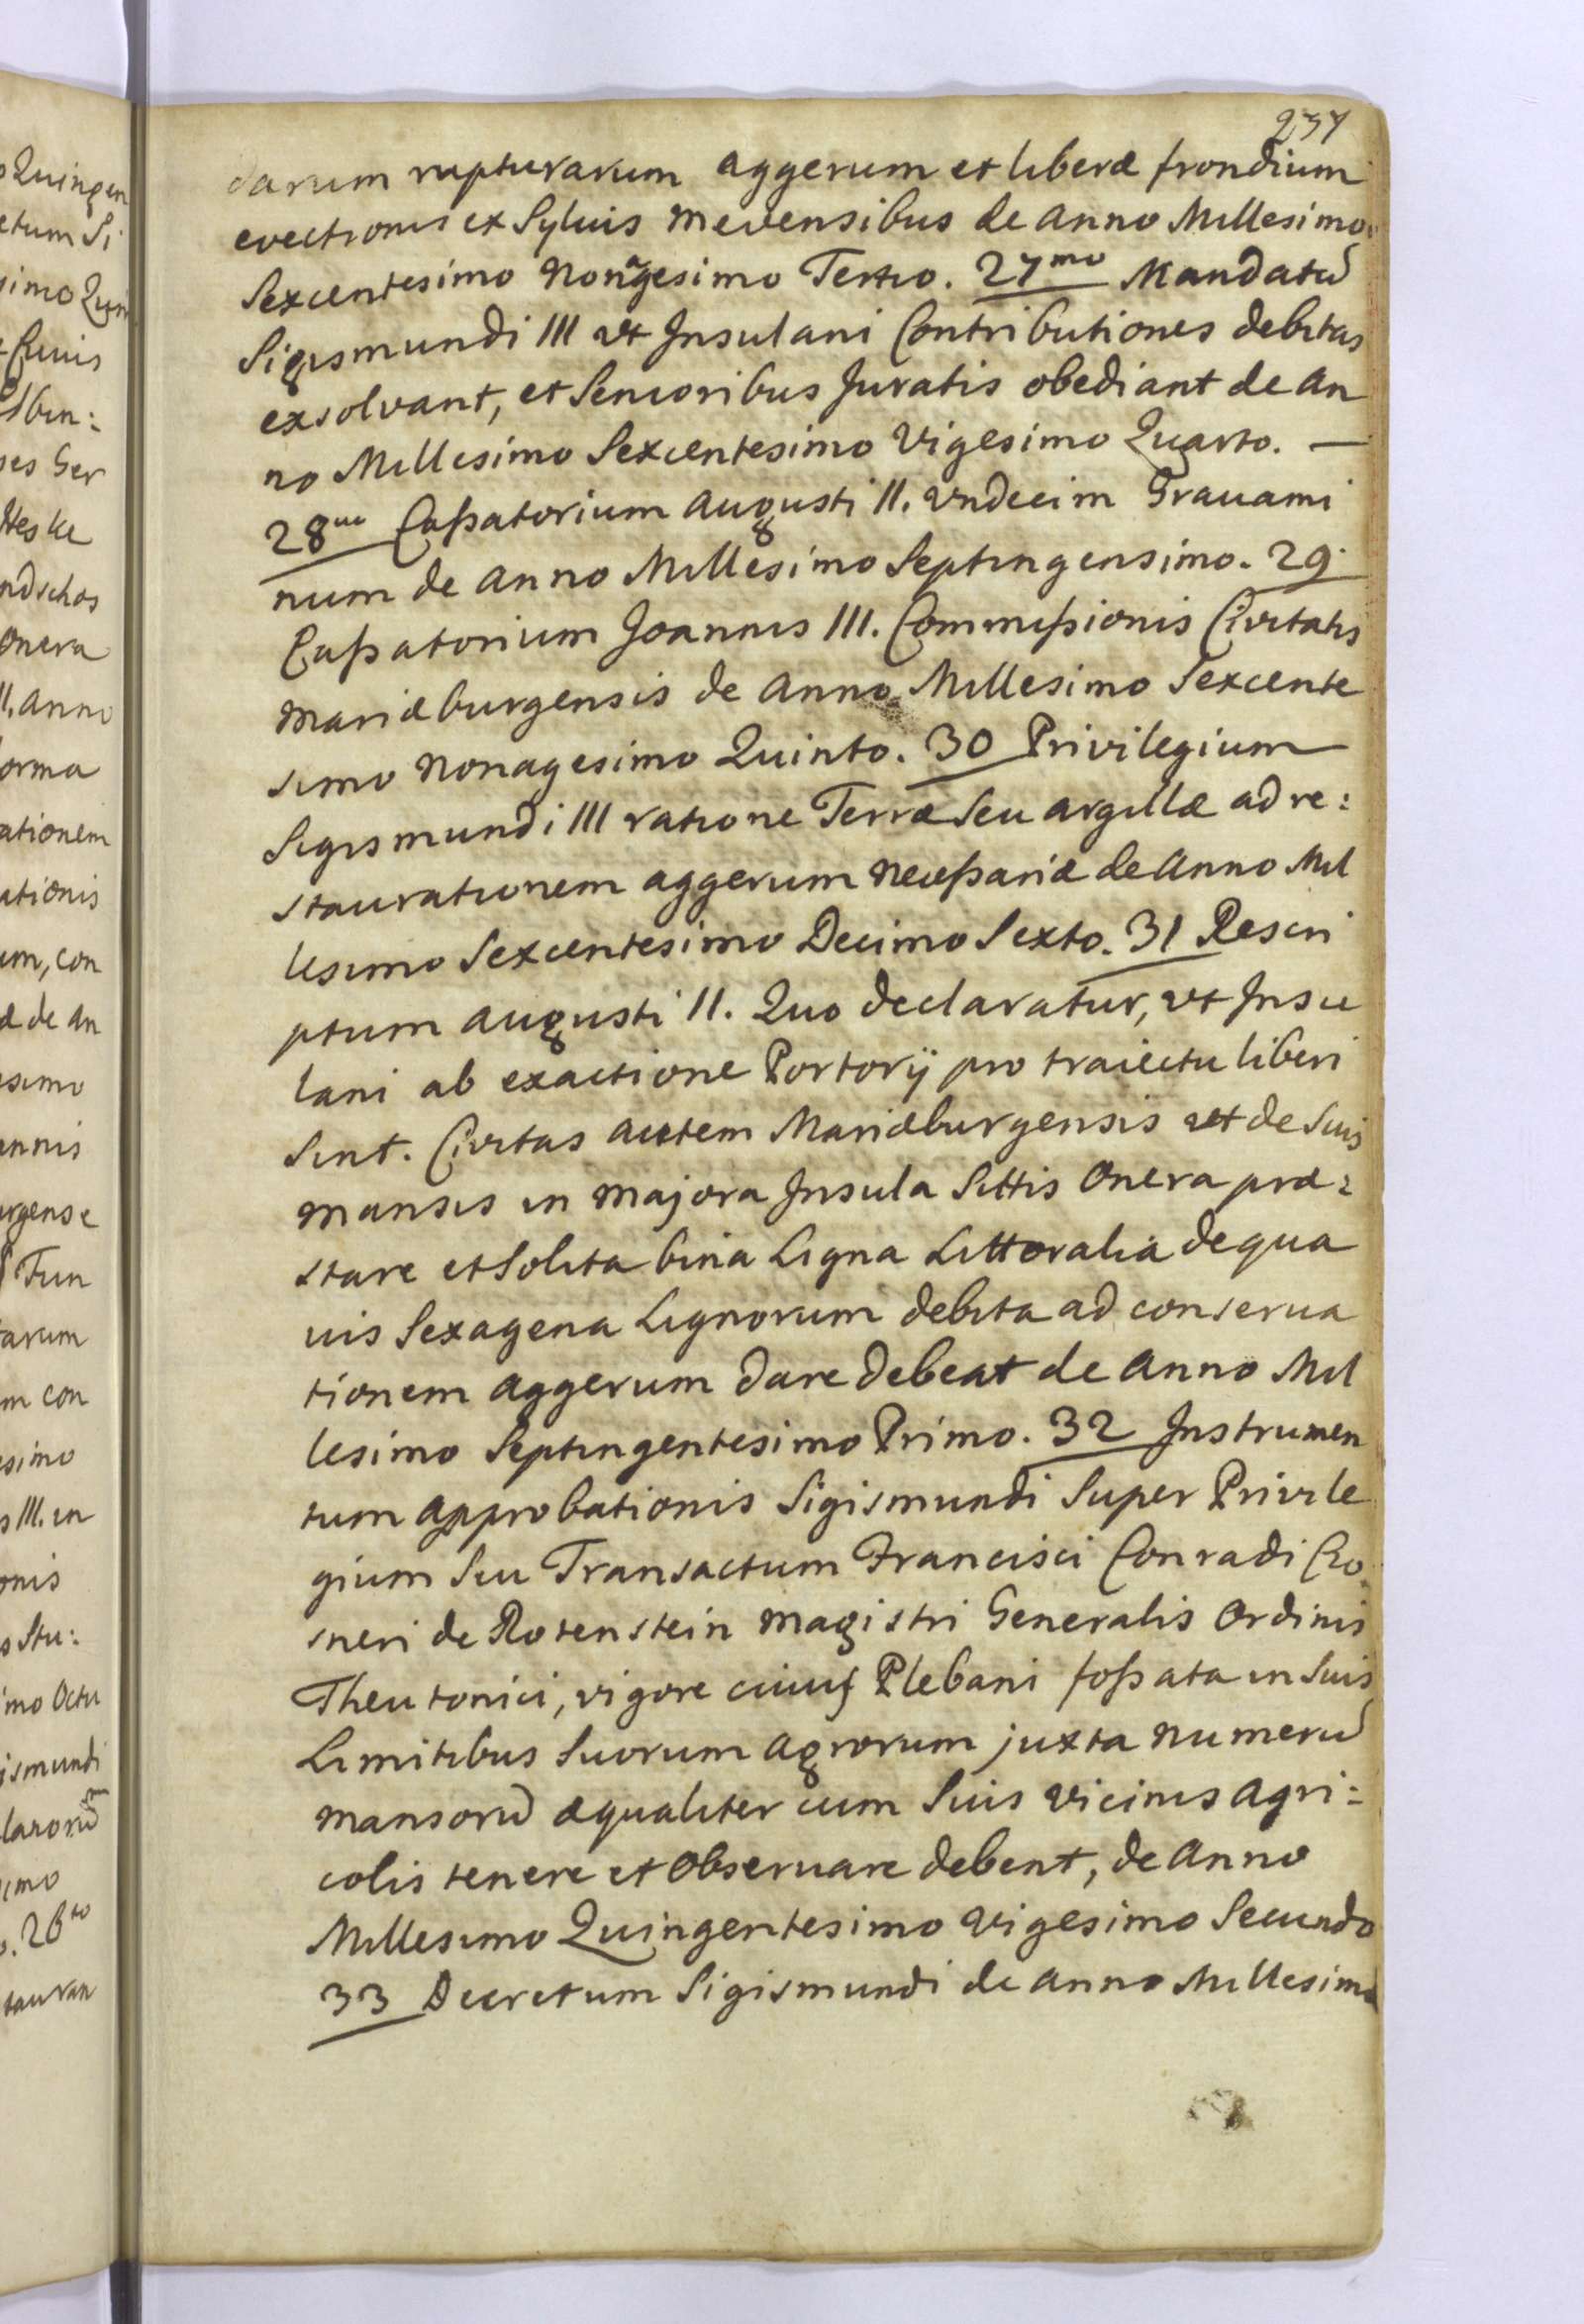 237
darum rupturarum aggerum et liberæ frondium
evectionis ex Syluis Mevensibus de Anno Millesimo
Sexcentesimo Nonagesimo Tertio. 27mo Mandatū
Sigismundi III vt Insulani Contributiones debitas
exsolvant, et Senioribus Juratis obediant de An
no Millesimo Sexcentesimo Vigesimo Quarto. —
28uo Caßatorium Augusti II. Vndecim Grauami
num de Anno Millesimo Septingensimo. 29.
Caßatorium Joannis III. Commißionis Civitatis
Mariæburgensis de Anno Millesimo Sexcente
simo Nonagesimo Quinto. 30 Privilegium
Sigismundi III ratione Terræ Seu argillæ ad re:
staurationem aggerum Neceßariæ de Anno Mil
lesimo Sexcentesimo Decimo Sexto. 31 Rescri
ptum Augusti II. Quo declaratur, vt Insu
lani ab exactione Portorÿ pro traiectu liberi
Sint. Civitas autem Mariæburgensis vt de Suis
Mansis in Majora Insula Sittis Onera præ:
stare et Solita bina Ligna Littoralia de qua
uis Sexagena Lignorum debita ad conserua
tionem Aggerum dare debeat de Anno Mil
lesimo Septingentesimo Primo. 32 Instrumen
tum Approbationis Sigismundi Super Privile
gium Seu Transactum Francisci Conradi Czo
sneri de Rotenstein Magistri Generalis Ordinis
Theutonici, vigore cuius Plebani foßata in Suis
Limitibus Suorum Agrorum juxta Numerū
Mansorū æqualiter cum Suis Vicinis Agri:
colis tenere et Obseruare debent, de Anno
Millesimo Quingentesimo Vigesimo Secundo
33 Decretum Sigismundi de Anno Millesimo